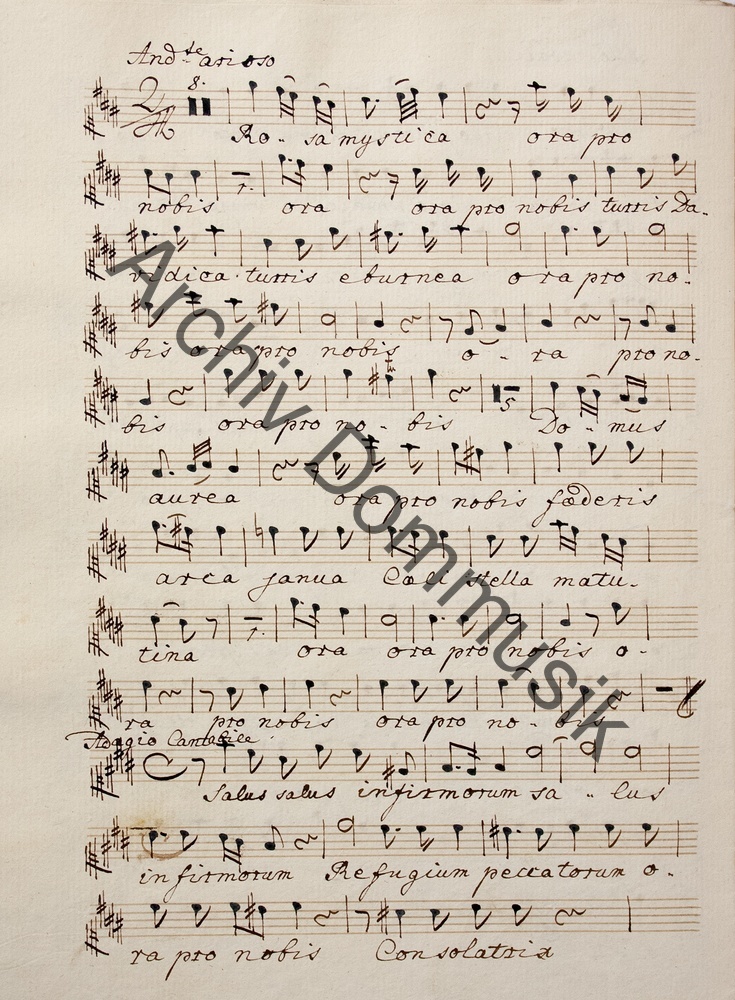 And.te arioso
8.
Ro- sa mystica ora pro
nobis ora ora pro nobis turris Da-
vidica turris eburnea ora pro no-
bis ora pro nobis o- ra pro no-
bis ora pro no- bis Do- mus
5
aurea ora pro nobis fœderis
arca janua Cœli stella matu-
tina ora ora pro nobis o-
ra pro nobis ora pro no- bis
Adagio Cantabile.
Salus salus infirmorum sa- lus
infirmorum Refugium peccatorum o-
ra pro nobis Consolatrix
Archiv Dommusik